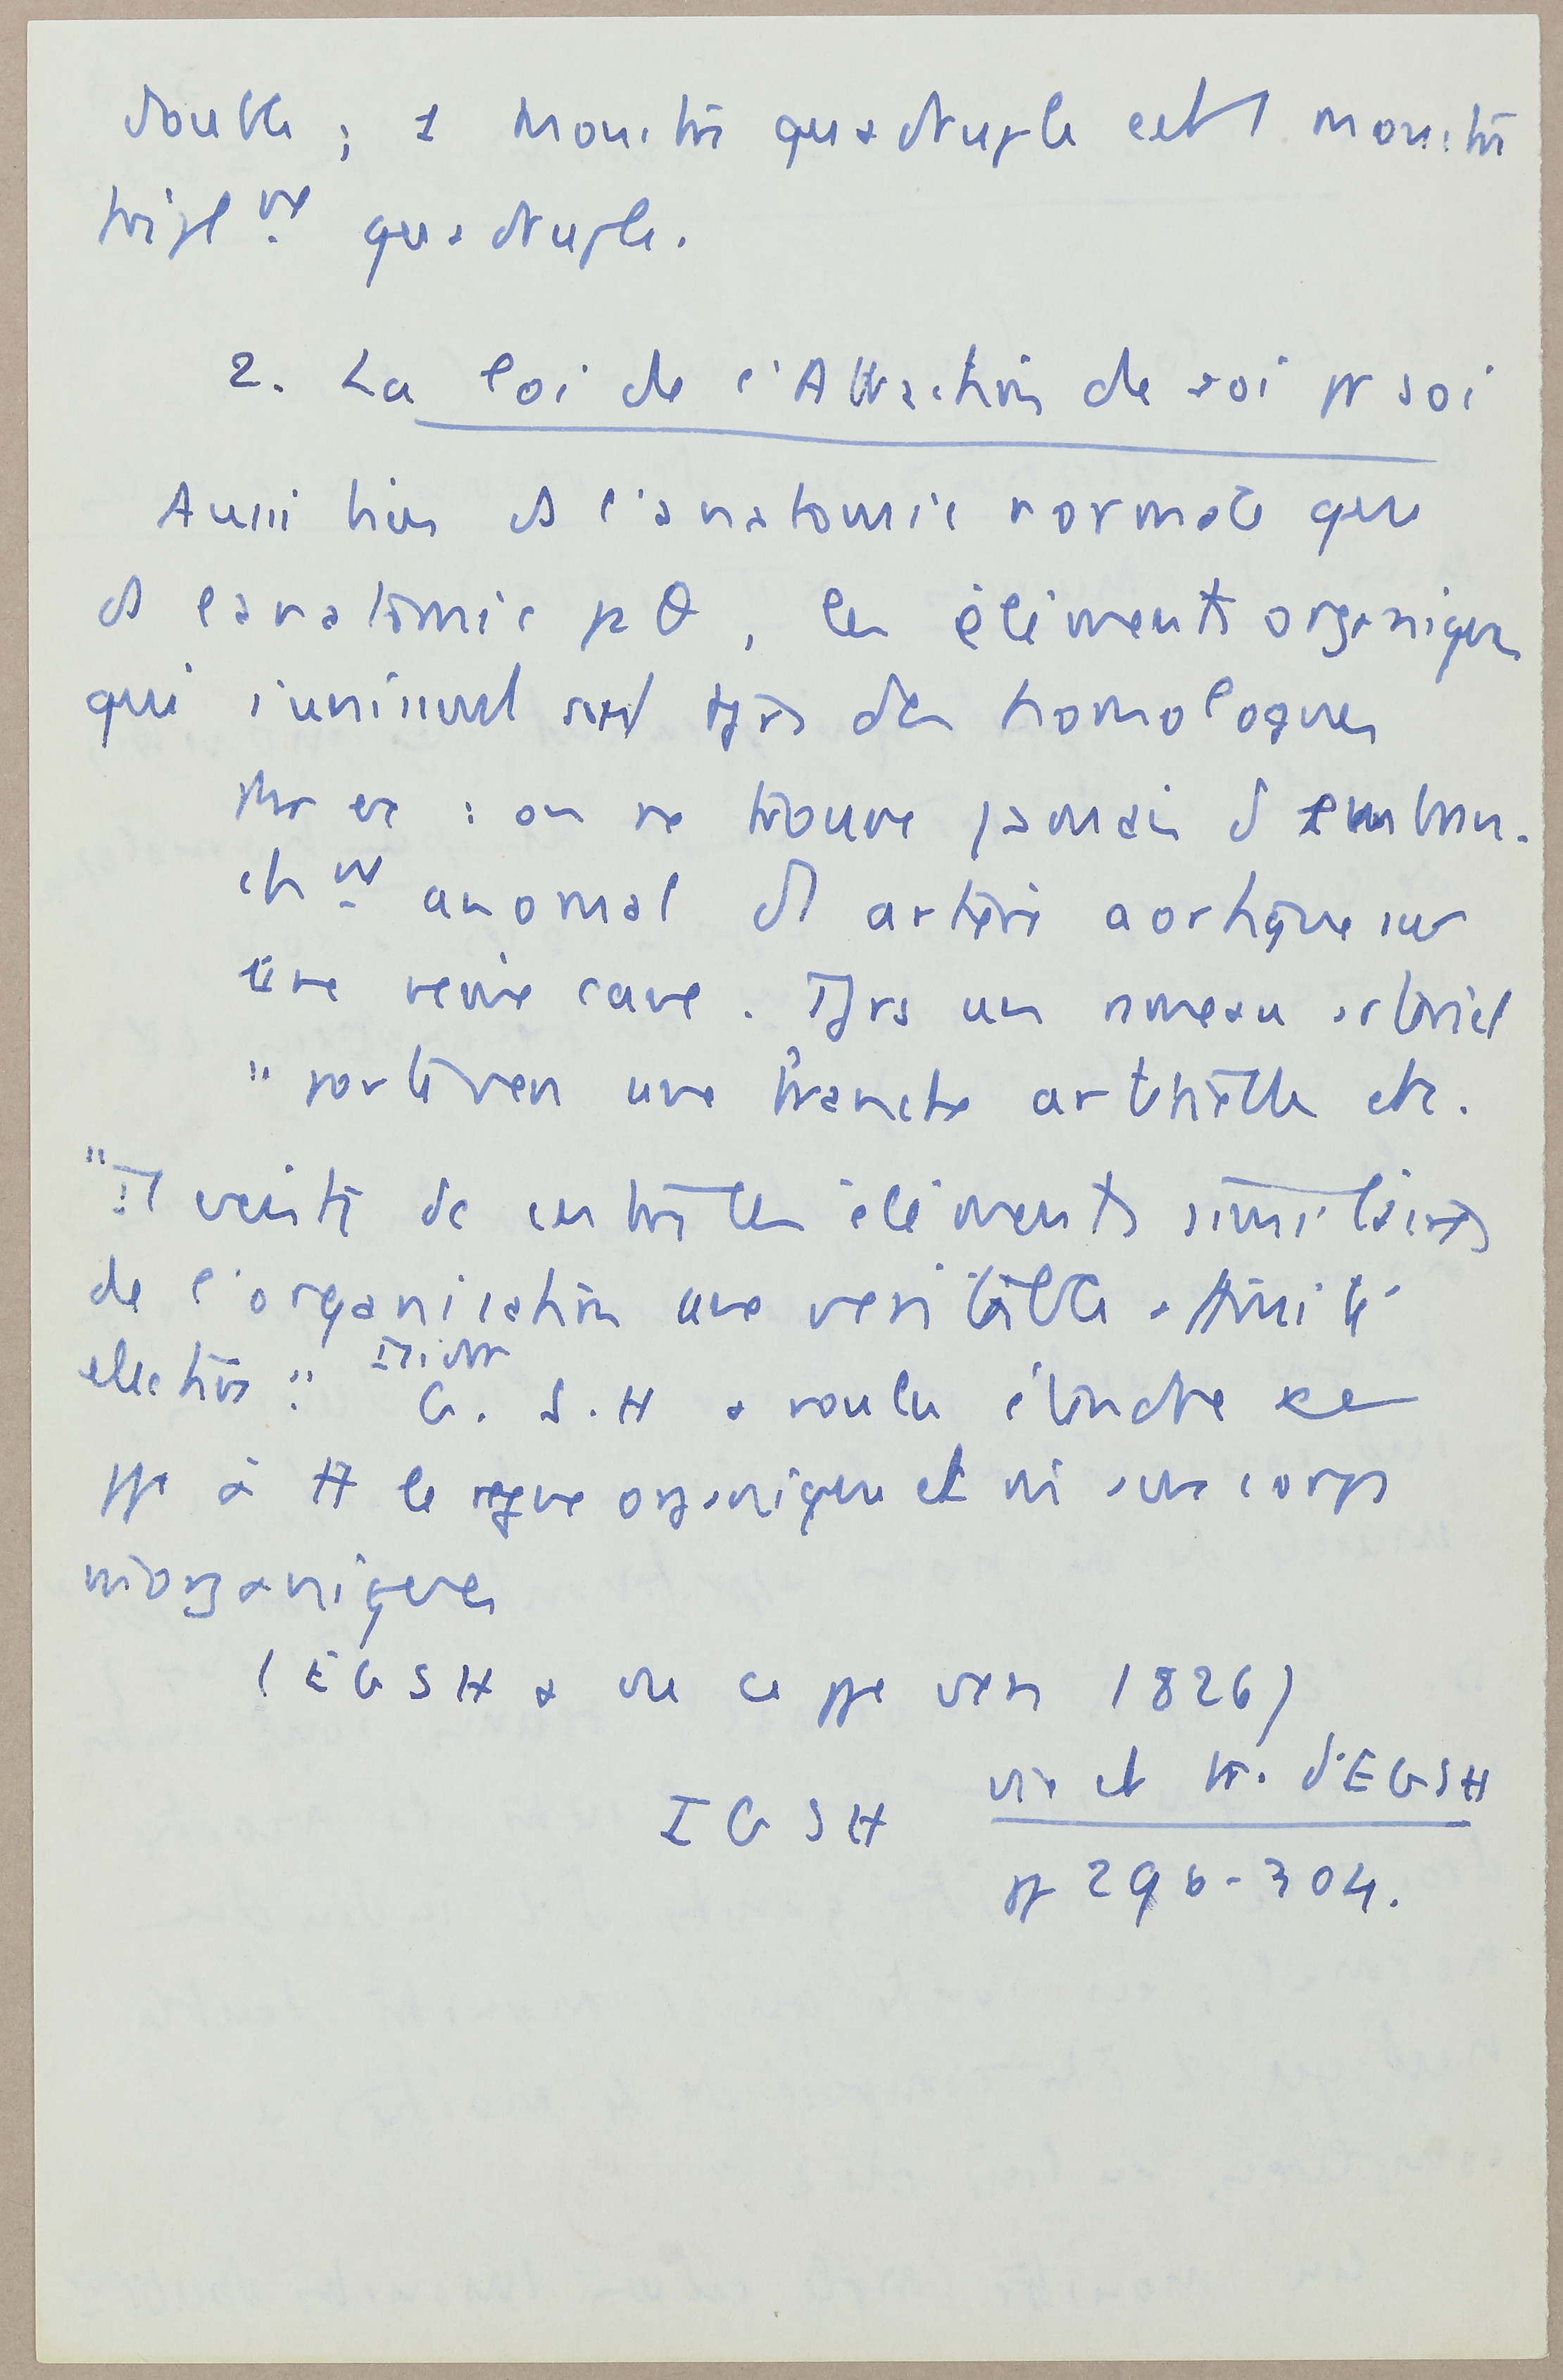 double ; 1 monstre quadruple est 1 monstre
tripl^mt quadruple.
2. La loi de l'Attraction de soi pr soi
Aussi bien ds l'anatomie normale que
ds l'anatomie pθ, les éléments organiques
qui s'unissent sont tjrs des homologues
Par ex : on ne trouve jamais d'embou-
ch^mt anomal d'1 artère aortique sur
une veine cave. Tjrs un rameau artériel
" vers une branche artérielle etc.
"Il existe de entre les éléments similaires
de l'organisation une véritable affinité
élective" Isidore
G. S. H a voulu étendre ce
ppe à tt le règne organique et m̂ aux corps
inorganiques
(EGSH a vu ce ppe vers 1826)
IGSH vie et tr. d'EGSH
pp 296-304.